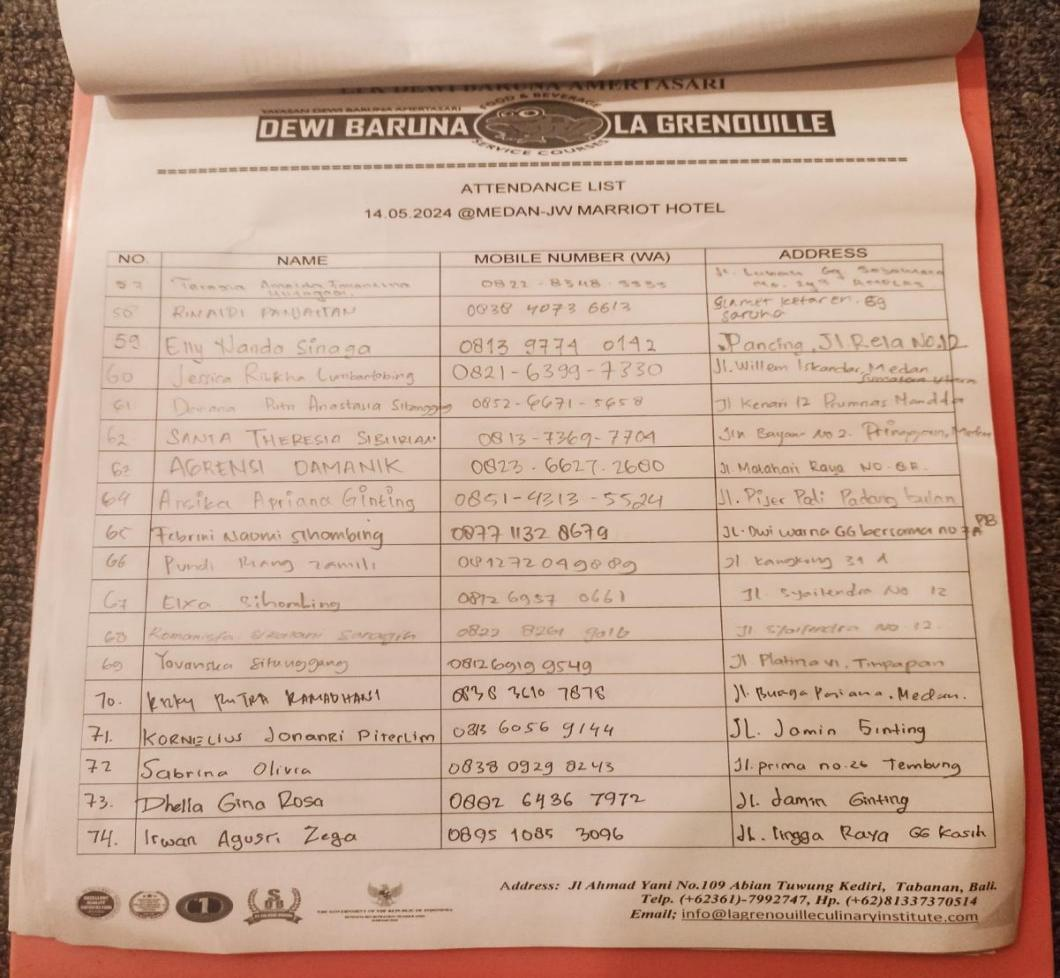 LPK DEWI BARUNA AMERTASARI
YAYASAN DEWI BARUNA AMERTASARI
FOOD & BEVERAGE
DEWI BARUNA LA GRENOUILLE
SERVICE COURSES
ATTENDANCE LIST
14.05.2024 @MEDAN-JW MARRIOT HOTEL
NO. NAME MOBILE NUMBER (WA) ADDRESS
57 0822 - 8348 - 5555
58 RINALDI PANJAITAN 0838 4073 6613 Slamet ketaren. Gg
saruna
59 Elly Nanda Sinaga 0813 9774 0142 Pancing, Jl. Rela No.12
60 Jessica Rizkha Lumbantobing 0821-6399-7330 Jl. Willem Iskandar, Medan
Sumatera Utara
61 Putri Anastasia 0852-6671-5658 Jl Kenari 12 Prumnas Mandala
62 SANTA THERESIA SIBURIAN 0813-7369-7704 Jln Bayam No 2.
63 AGRENSI DAMANIK 0823.6627.2600 Jl. Matahari Raya NO.
64 Ansika Apriana Ginting 0851-4313-5524 Jl. Pijer Podi Padang bulan
65 Febrini Naomi Sihombing 0877 1132 8679 JL. Dwi warna GG bersama no
66 Pundi Riang Zamili 081272049889 Jl Kangkung 31 A
67 Elxa Sihombing 0812 6957 0661 Jl. Syailendra No 12
68 Saragih 0822 8261 9016 Jl Syailendra NO 12.
69 Yovanska Situnggang 0812 6919 9549 Jl. Platina VI, Titipapan
70. Rizky PUTRA RAMADHANI 0838 3610 7878 Jl. Medan.
71. KORNELIUS Jonanri Piterlim 0813 6056 9144 JL. Jamin Ginting
72 Sabrina Olivia 0838 0929 8243 Jl. prima no.26 Tembung
73. Dhella Gina Rosa 0882 6436 7972 Jl. Jamin Ginting
74. Irwan Agusri Zega 0895 1085 3096 JL. lingga Raya GG Kasih
THE GOVERNMENT OF THE REPUBLIC OF INDONESIA
Address: Jl Ahmad Yani No.109 Abian Tuwung Kediri, Tabanan, Bali.
Telp. (+62361)-7992747, Hp. (+62)81337370514
Email; info@lagrenouilleculinaryinstitute.com